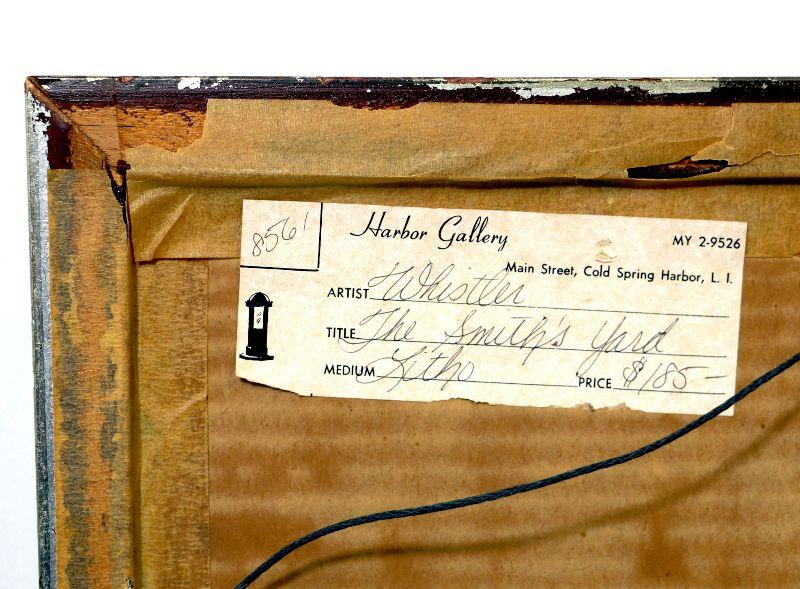 8561
Harbor Gallery
MY 2-9526
Main Street, Cold Spring Harbor, L. I.
ARTIST Whistler
TITLE The Smith's Yard
MEDIUM Litho PRICE $185-